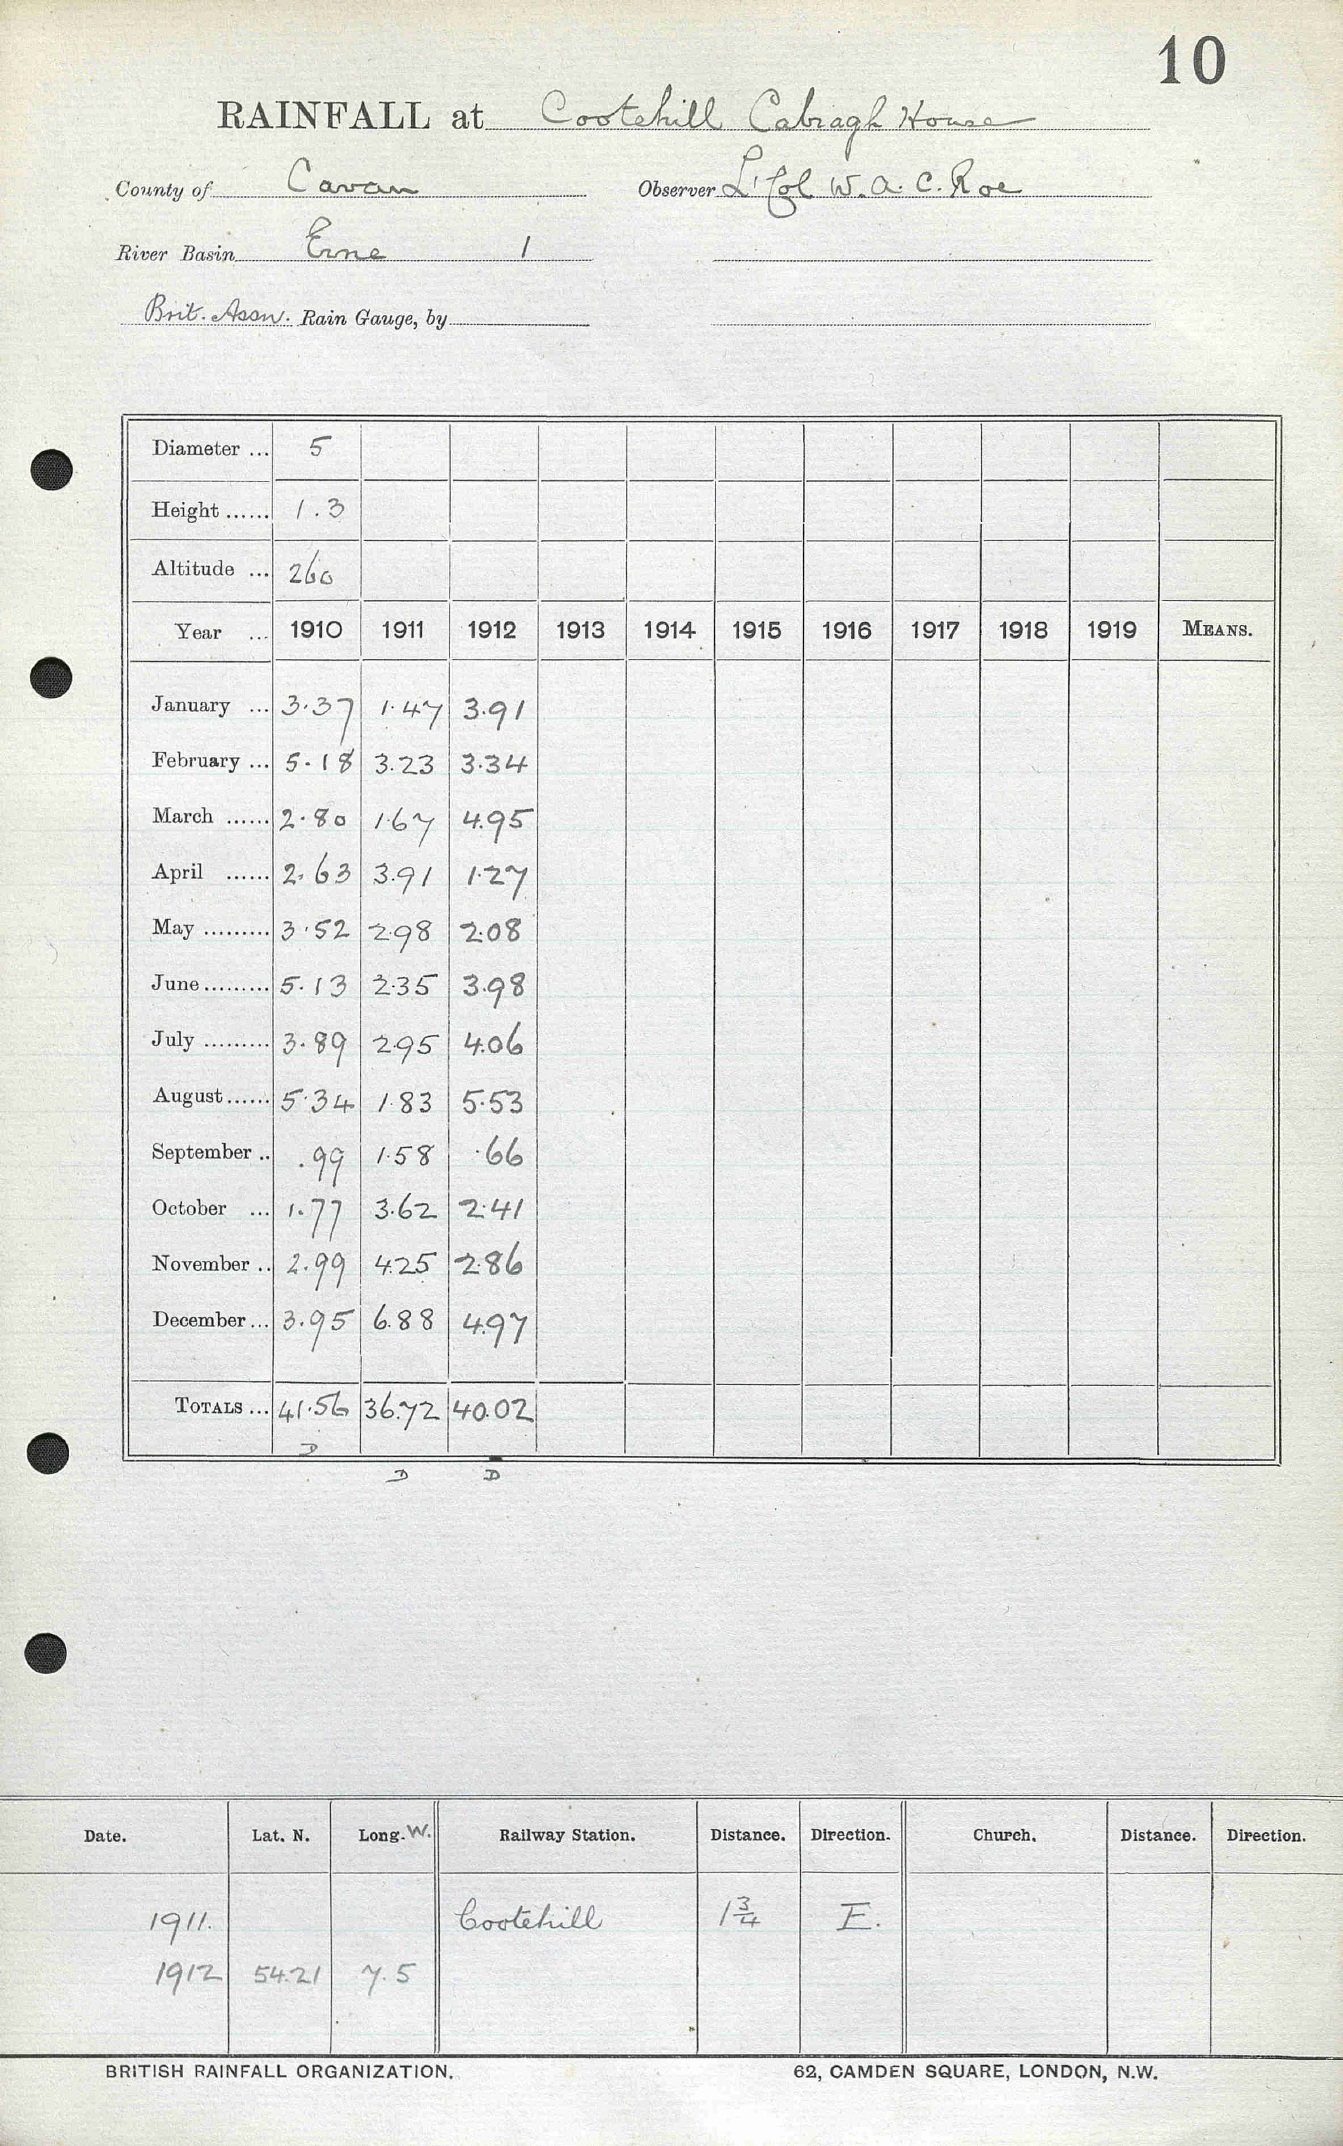 10
RAINFALL at Cootehill Cabragh House
County of Cavan Observer Lt Col W. A. C. Roe
River Basin Erne 1
Brit. Assn. Rain Gauge, by
Diameter ... 5
Height ...... 1.3
Altitude ... 260
Year ... 1910 1911 1912 1913 1914 1915 1916 1917 1918 1919 MEANS.
January ... 3.37 1.47 3.91
February ... 5.18 3.23 3.34
March ...... 2.80 1.67 4.95
April ...... 2.63 3.91 1.27
May ......... 3.52 2.98 2.08
June ......... 5.13 2.35 3.98
July ......... 3.89 2.95 4.06
August ...... 5.34 1.83 5.53
September .. .99 1.58 .66
October ... 1.77 3.62 2.41
November .. 2.99 4.25 2.86
December ... 3.95 6.88 4.97
TOTALS ... 41.56 36.72 40.02
D
D D
Date. Lat. N. Long. W. Railway Station. Distance. Direction. Church. Distance. Direction.
1911. Cootehill 1 3/4 E.
1912 54.21 7.5
BRITISH RAINFALL ORGANIZATION. 62, CAMDEN SQUARE, LONDON, N.W.